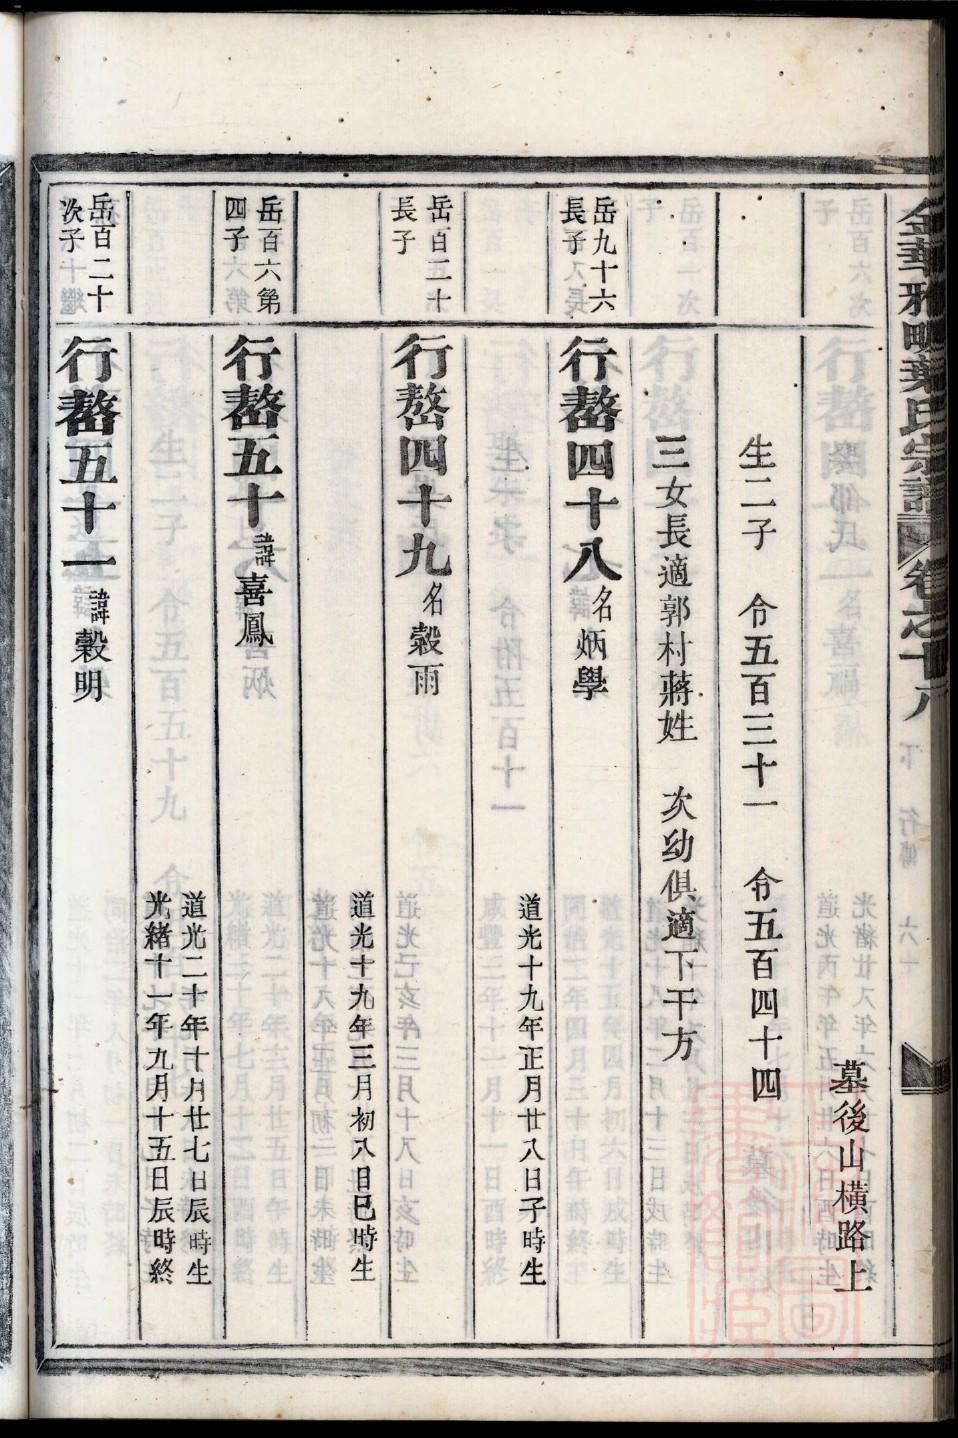 金華雅畈葉氏宗譜 卷之十八 下 行傳 六十
墓後山橫路上
生二子 令五百三十一 令五百四十四
三女長適郭村蔣姓 次幼俱適下干方
岳九十六
長子
行嶅四十八 名炳學
道光十九年正月廿八日子時生
岳百五十
長子
行嶅四十九 名穀雨
道光十九年三月初八日巳時生
岳百六第
四子
行嶅五十 諱喜鳳
道光二十年十月廿七日辰時生
光緒十一年九月十五日辰時終
岳百二十
次子
行嶅五十一 諱穀明